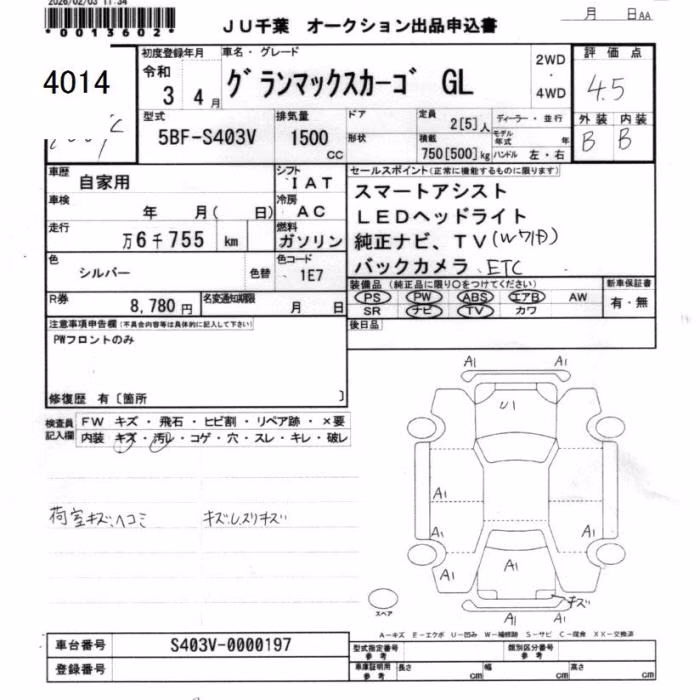 2026/02/03 11:34
*0013602*
JU千葉 オークション出品申込書
月 日AA
4014
初度登録年月
令和
3 4月
車名・グレード
グランマックスカーゴ GL
2WD
・
4WD
評価点
4.5
外装 内装
B B
型式
5BF-S403V
排気量
1500
CC
ドア
形状
定員
2[5]人
積載
750[500]kg
ディーラー・並行
モデル年式 年
ハンドル 左・右
車歴
自家用
シフト
IAT
車検
年 月( 日)
冷房
AC
走行
万6千755 km
燃料
ガソリン
色
シルバー
色替
色コード
1E7
R券
8,780円
名変通知期限
月 日
セールスポイント(正常に機能するものに限ります)
スマートアシスト
LEDヘッドライト
純正ナビ、TV(Wワイド)
バックカメラ ETC
装備品(純正品に限り○をつけてください)
PS PW ABS エアB AW
SR ナビ TV カワ
新車保証書
有・無
後日品
注意事項申告欄(不具合内容等は具体的に記入して下さい)
PWフロントのみ
修復歴 有〔箇所 〕
検査員記入欄
FW キズ・飛石・ヒビ割・リペア跡・×要
内装 キズ・汚レ・コゲ・穴・スレ・キレ・破レ
荷室キズ、ヘコミ キズ、しスリキズ
A1 A1
U1
A1
A1 A1
A1 A1 A1
キズ
A1 A1
スペア
A-キズ E-エクボ U-凹み W-補修跡 S-サビ C-腐食 XX-交換済
車台番号
S403V-0000197
登録番号
型式指定番号
参考
類別区分番号
参考
車庫証明用
参考
長さ cm 幅 cm 高さ cm